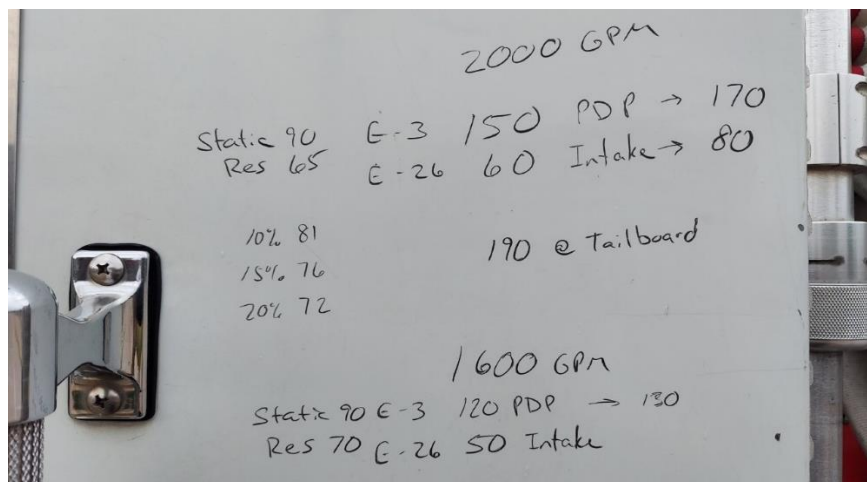 2000 GPM
Static 90 E-3 150 PDP → 170
Res 65 E-26 60 Intake → 80
10% 81
190 @ Tailboard
15% 76
20% 72
1600 GPM
Static 90 E-3 120 PDP → 130
Res 70 E-26 50 Intake